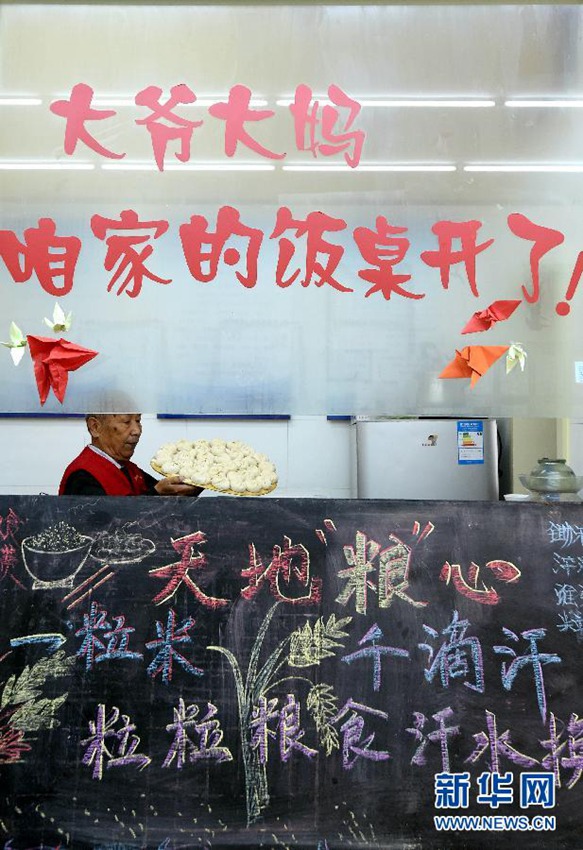 大爷大妈
咱家的饭桌开了！
天地"粮"心
一粒米 千滴汗
粒粒粮食汗水换
锄禾
新华网
WWW.NEWS.CN